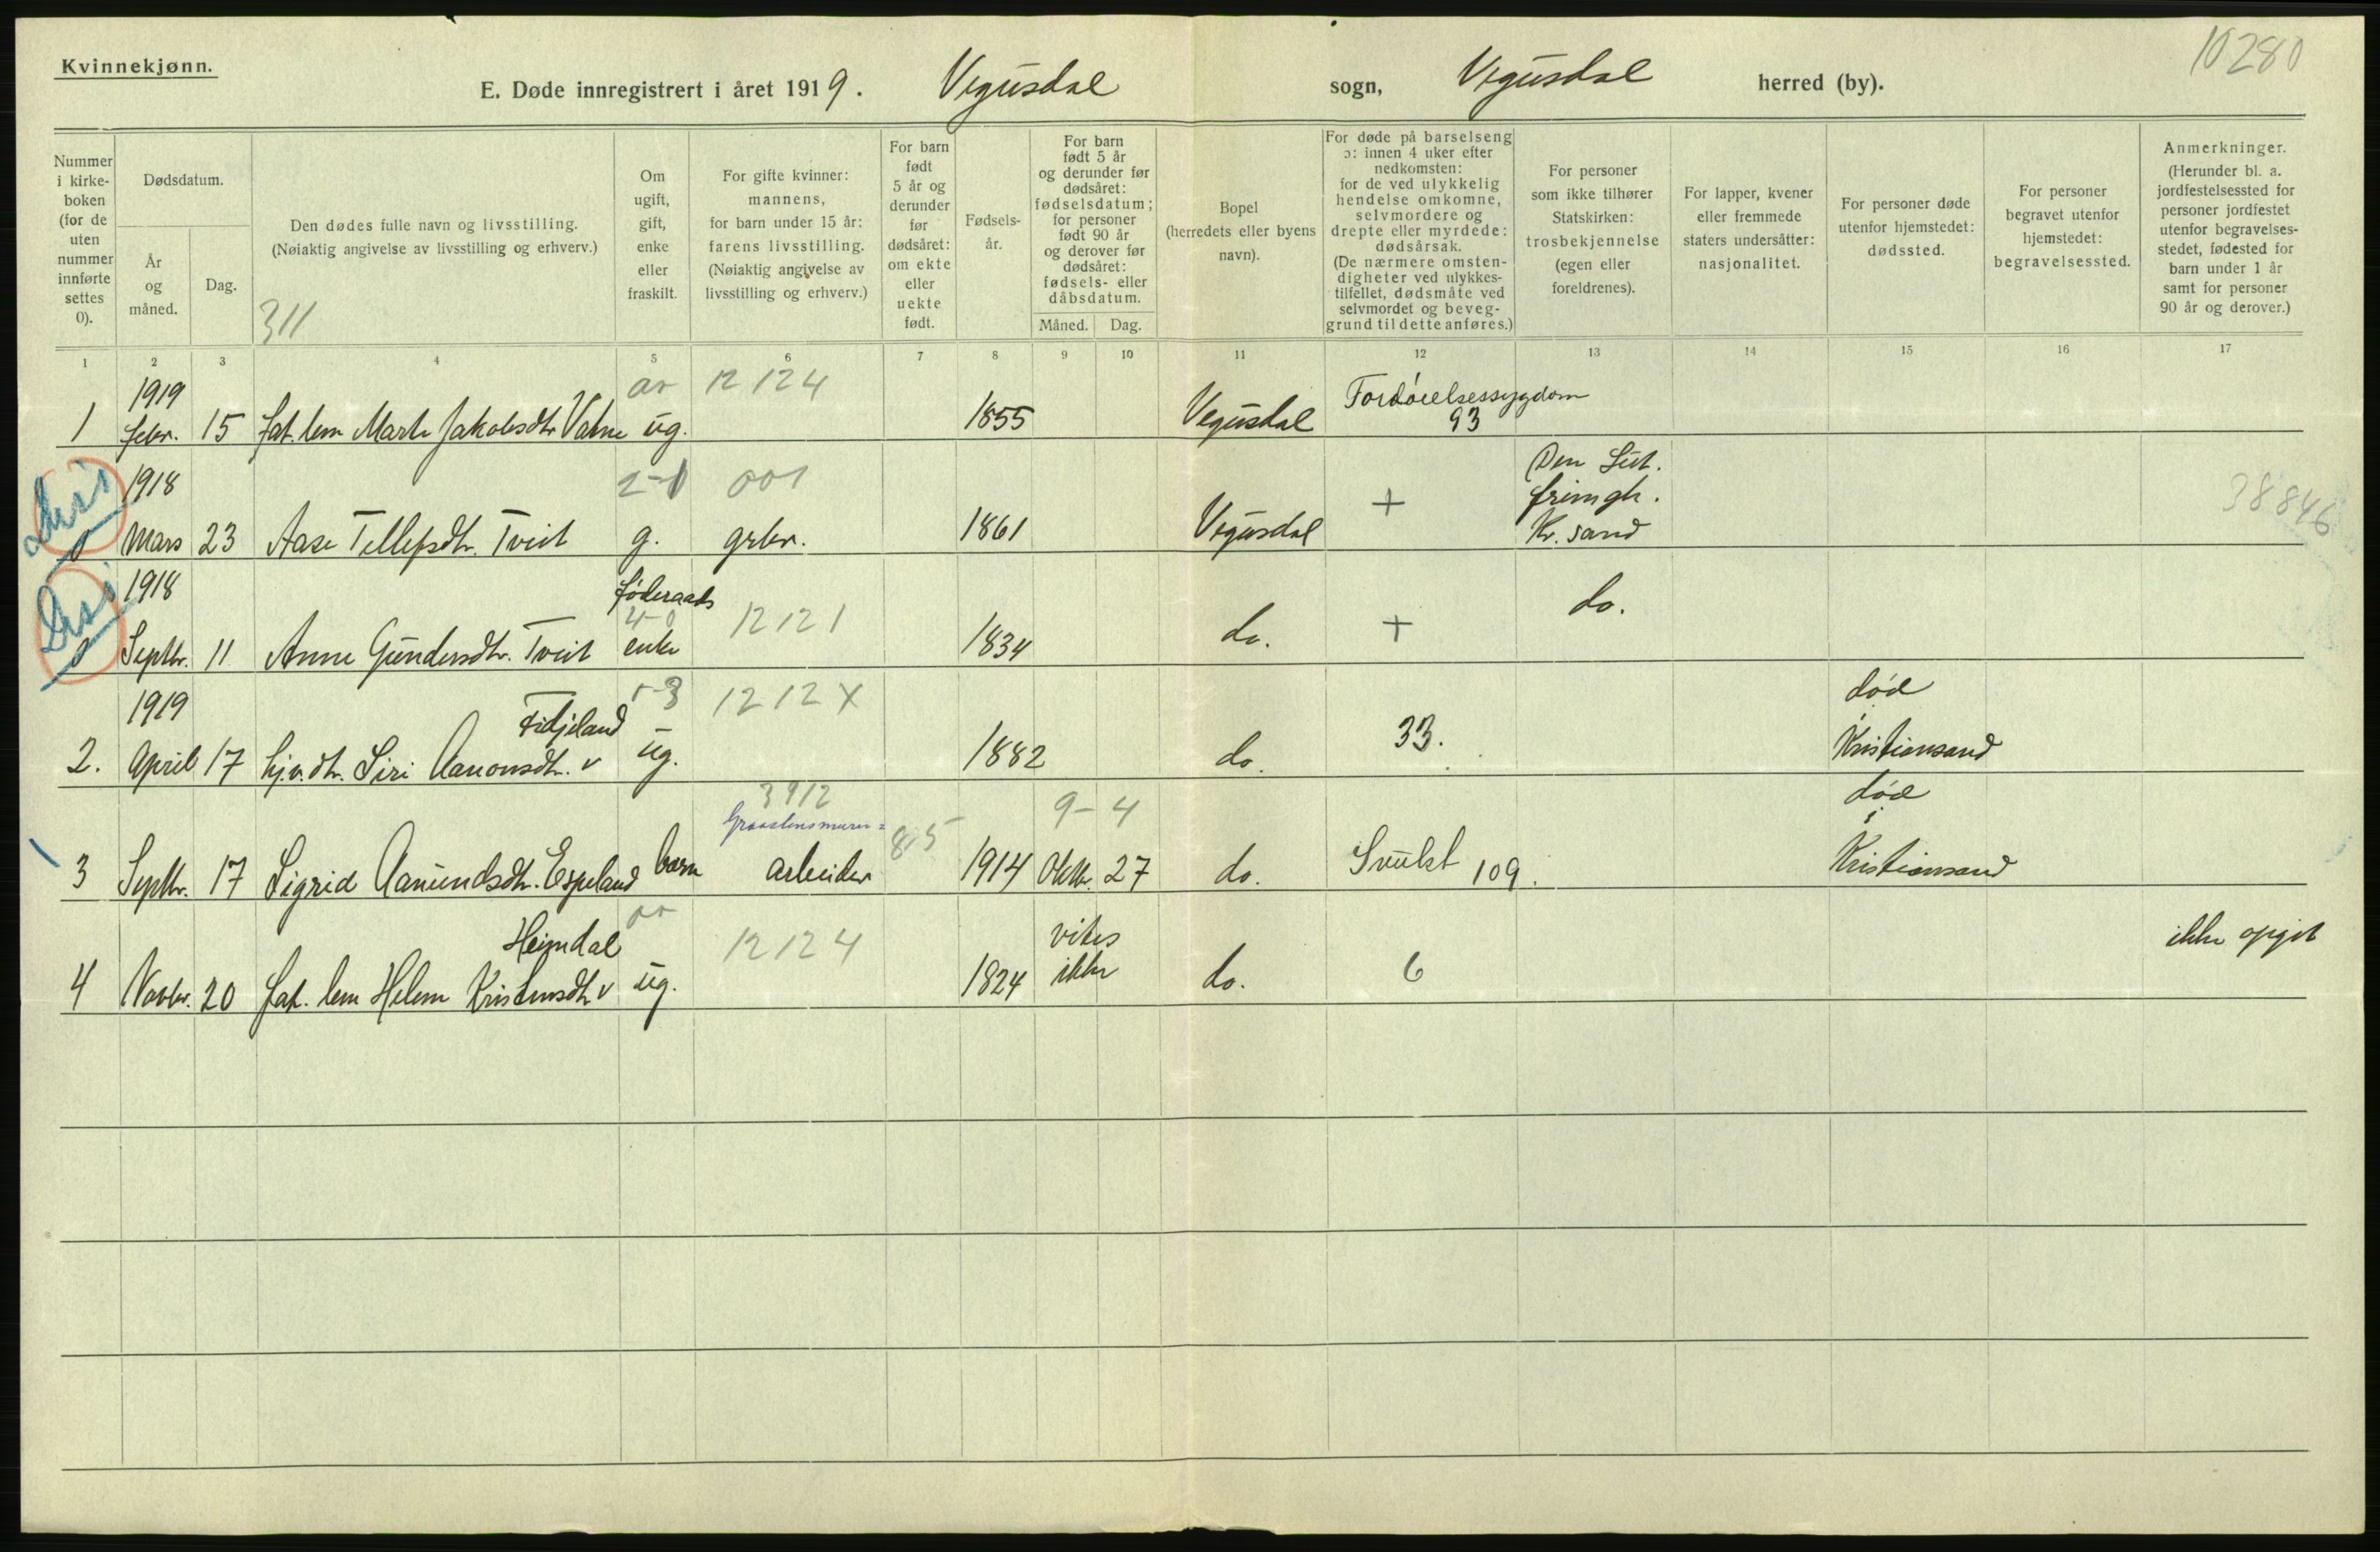 Kvinnekjønn.
10280
E. Døde innregistrert i året 1919. Vegusdal sogn, Vegusdal herred (by).
Nummer i kirke-boken (for de uten nummer innførte settes 0).
Dødsdatum.
År og måned.
Dag.
Den dødes fulle navn og livsstilling.
(Nøiaktig angivelse av livsstilling og erhverv.)
311
Om ugift, gift, enke eller fraskilt.
For gifte kvinner: mannens, for barn under 15 år: farens livsstilling. (Nøiaktig angivelse av livsstilling og erhverv.)
For barn født 5 år og derunder før dødsåret: om ekte eller uekte født.
Fødsels-år.
For barn født 5 år og derunder før dødsåret: fødselsdatum; for personer født 90 år og derover før dødsåret: fødsels- eller dåbsdatum.
Måned. Dag.
Bopel (herredets eller byens navn).
For døde på barselseng ɔ: innen 4 uker efter nedkomsten: for de ved ulykkelig hendelse omkomne, selvmordere og drepte eller myrdede: dødsårsak. (De nærmere omsten-digheter ved ulykkes-tilfellet, dødsmåte ved selvmordet og beveg-grund til dette anføres.)
For personer som ikke tilhører Statskirken: trosbekjennelse (egen eller foreldrenes).
For lapper, kvener eller fremmede staters undersåtter: nasjonalitet.
For personer døde utenfor hjemstedet: dødssted.
For personer begravet utenfor hjemstedet: begravelsessted.
Anmerkninger. (Herunder bl. a. jordfestelsessted for personer jordfestet utenfor begravelses-stedet, fødested for barn under 1 år samt for personer 90 år og derover.)
1 2 3 4 5 6 7 8 9 10 11 12 13 14 15 16 17
1919 12 124
1 febr. 15 fat. lem Marte Jakobsdtr Vatne ug. 1855 Vegusdal Fordøielsessygdom 93
1918 2-1 001 Den Lut. frimgh. Kr. sand 38846
0 Mars 23 Aase Tellefsdtr. Tveit g. grbr. 1861 Vegusdal +
1918 føderaads 4-0 12121 do.
0 Septbr. 11 Anne Gundersdtr. Tveit enke 1834 do. +
1919 Fidjeland 1-3 1212X død i
2. April 17 hj.v. dtr. Siri Aanonsdtr. v ug. 1882 do. 33. Kristiansand
3912 Graastensmurer= 8.5 9-4 død i
3 Septbr. 17 Sigrid Aanundsdtr. Espeland barn arbeider 1914 Oktbr. 27 do. Svulst 109. Kristiansand
Heimdal 12124 vites ikke ikke opgit
4 Novbr. 20 fat. lem Helene Kristensdtr v ug. 1824 do. 6